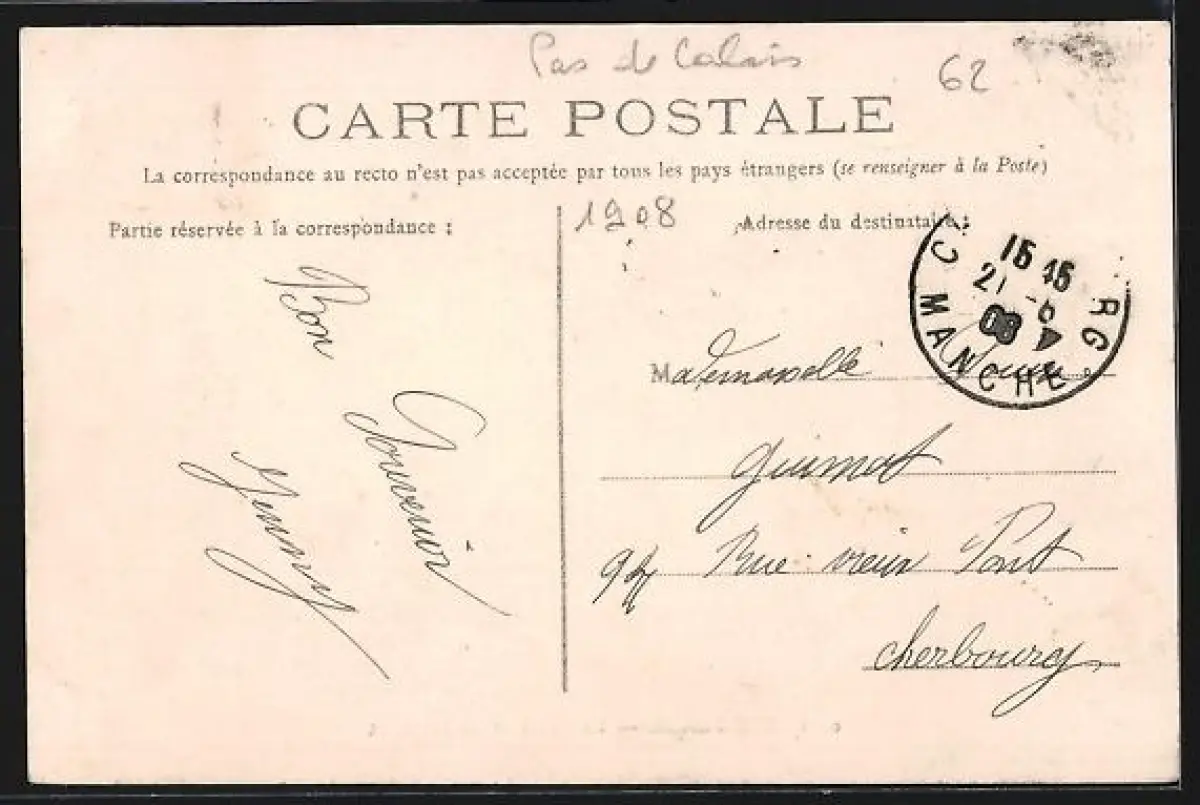 Pas de Calais
62
CARTE POSTALE
La correspondance au recto n'est pas acceptée par tous les pays étrangers (se renseigner à la Poste)
Partie réservée à la correspondance :
Bon
Souvenir
Jenny
1908
Adresse du destinataire :
C RG
15 45
21 -6
08
MANCHE
Mademoiselle
Guimat
Rue vieux Pont
Cherbourg